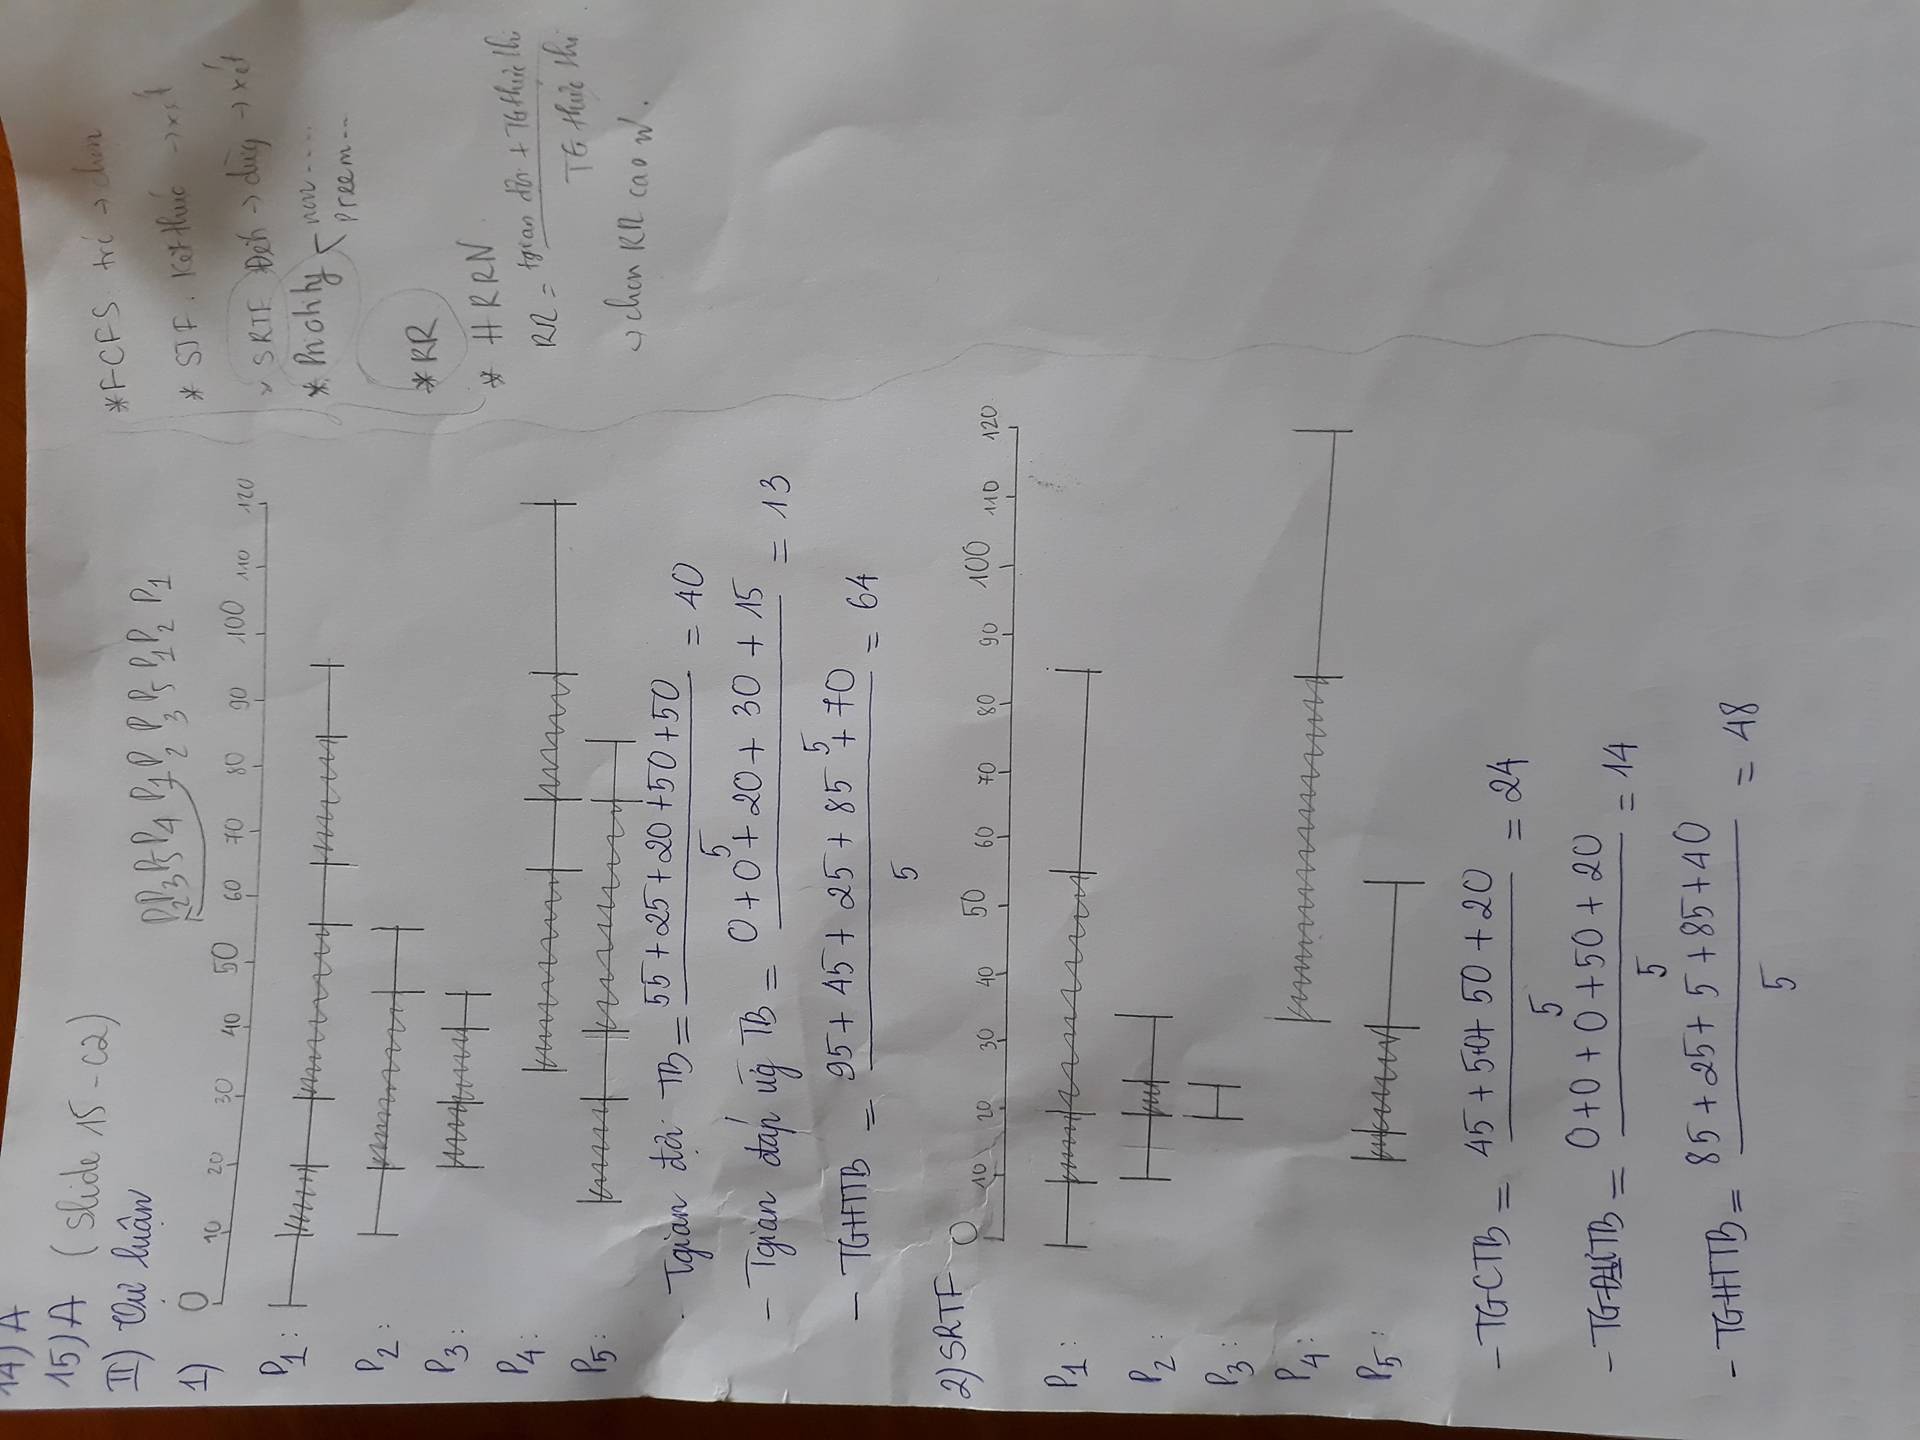 14) A
15) A (Slide 15 - C2)
II) Tự luận
P2 P3 P5 P4 P1 P2 P3 P5 P1 P2 P1
1)
0 10 20 30 40 50 60 70 80 90 100 110 120
P1:
P2:
P3:
P4:
P5:
- Tgian đợi TB = 55 + 25 + 20 + 50 + 50 / 5 = 40
- Tgian đáp ứg TB = 0 + 0 + 20 + 30 + 15 / 5 = 13
- TGHTTB = 95 + 45 + 25 + 85 + 70 / 5 = 64
2) SRTF
0 10 20 30 40 50 60 70 80 90 100 110 120
P1:
P2:
P3:
P4:
P5:
- TGCTB = 45 + 5 + 0 + 50 + 20 / 5 = 24
- TGĐƯTB = 0 + 0 + 0 + 50 + 20 / 5 = 14
- TGHTTB = 85 + 25 + 5 + 85 + 40 / 5 = 48
* FCFS → chọn
* SJF. Kết thúc → xét
* SRTF Đến → dừg → xét
* Priority non ....
Preem...
* RR
* HRRN
RR = tgian đợi + TG thực thi / TG thực thi
→ chọn RR cao n'.